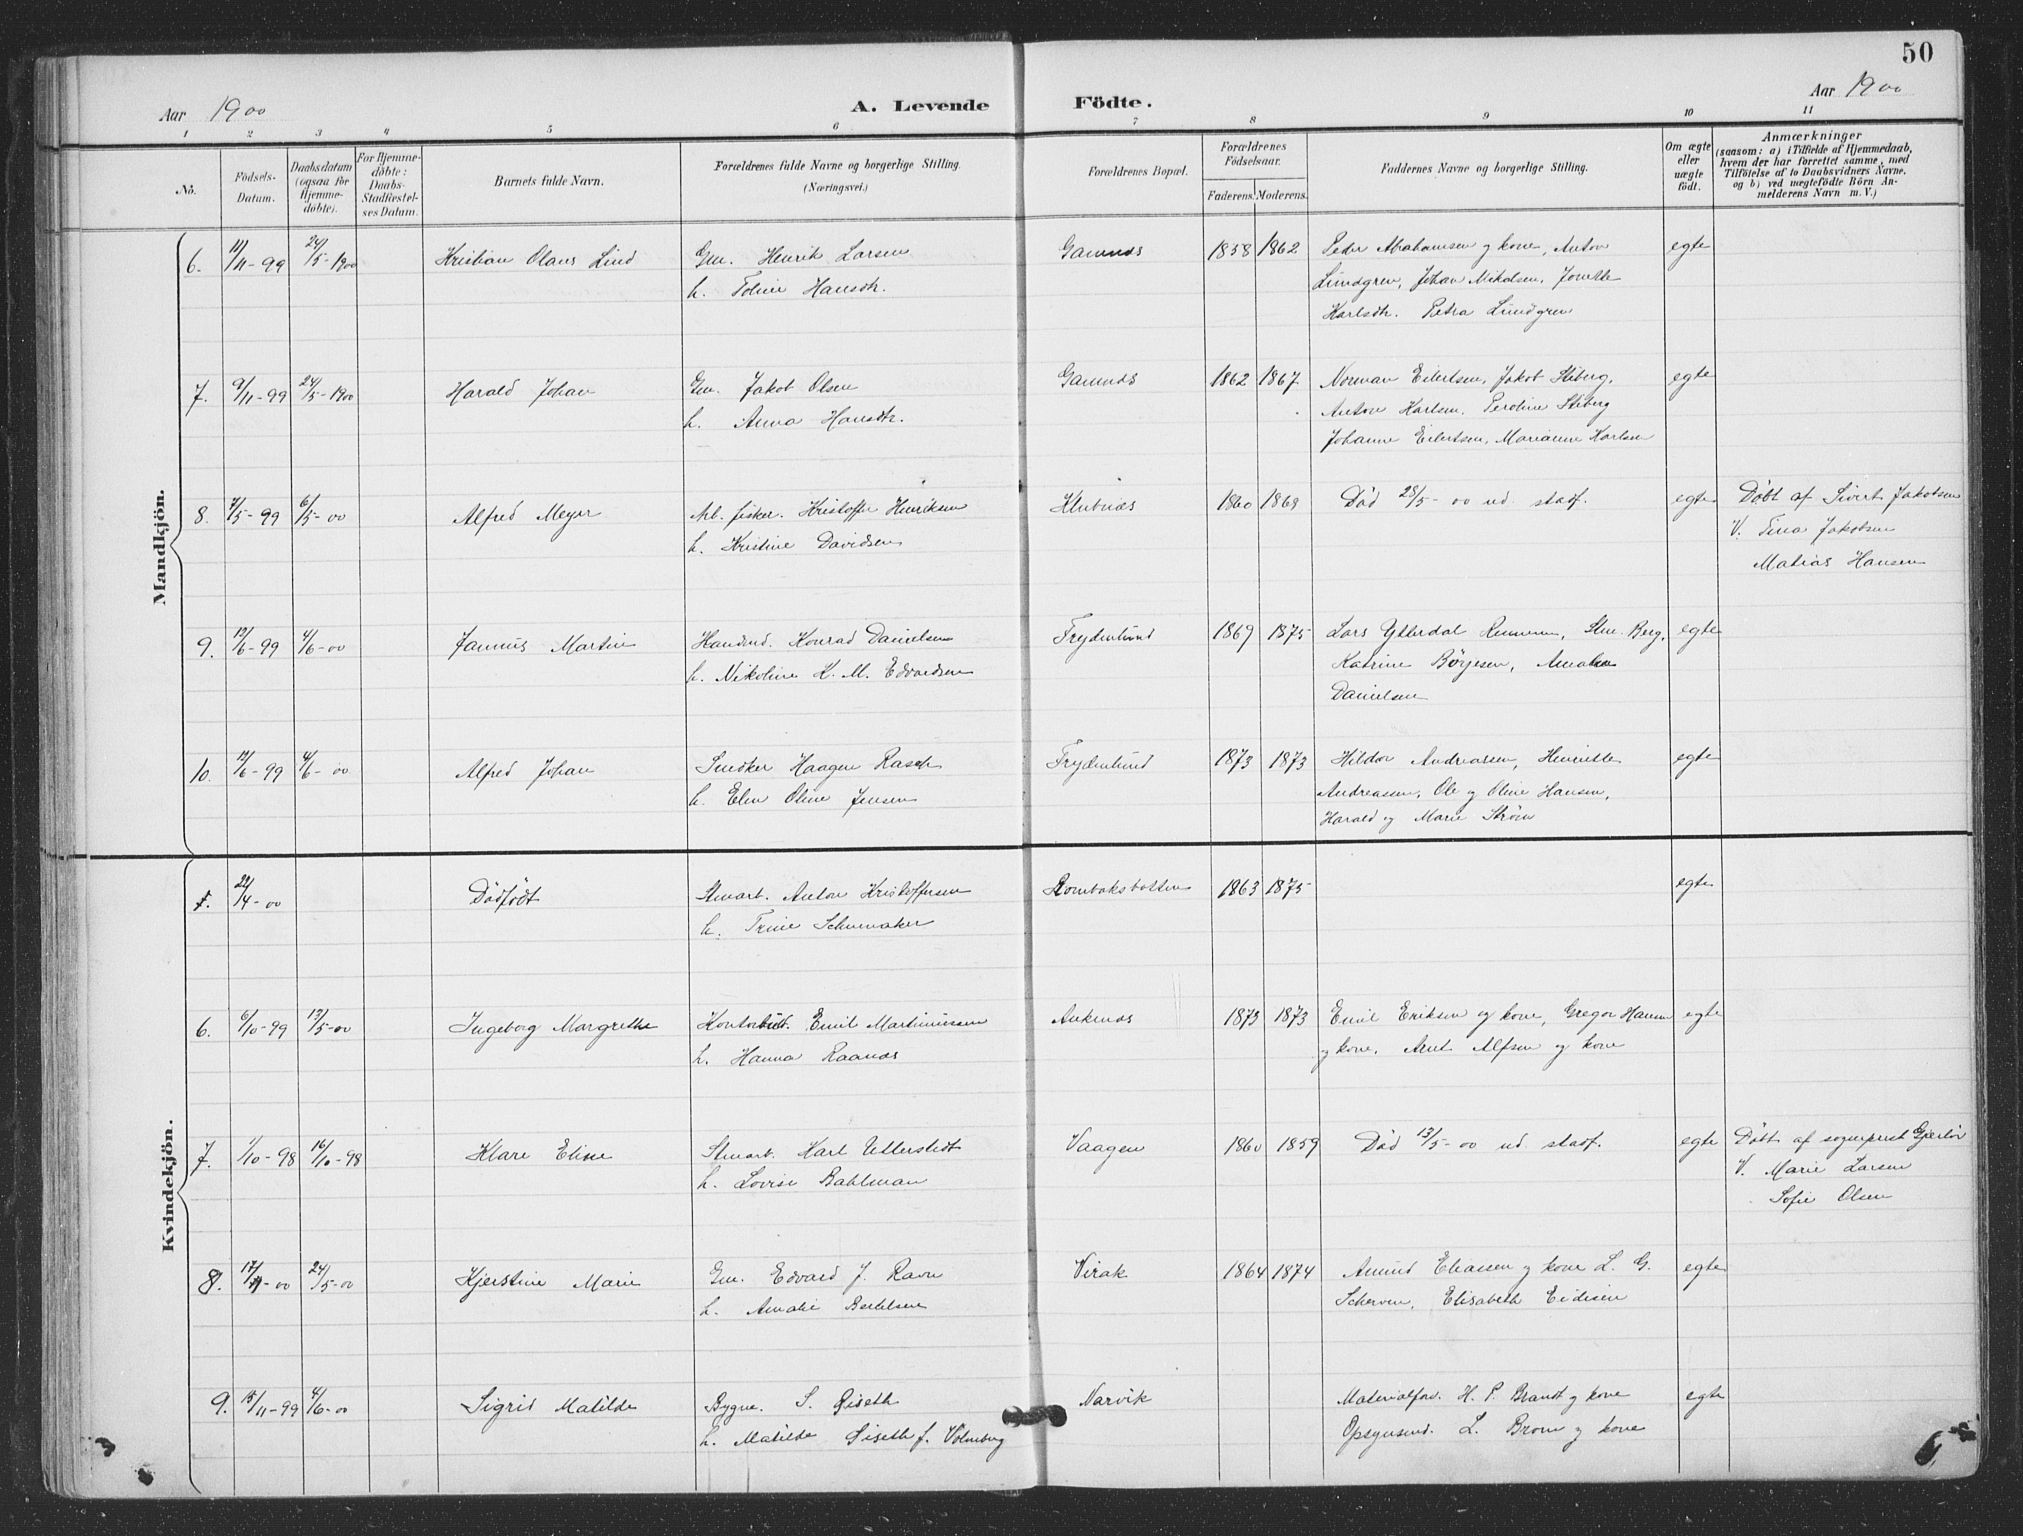 50
Aar 1900
A. Levende Födte.
Aar 1900
1 2 3 4 5 6 7 8 9 10 11
No.
Födsels-Datum.
Daabsdatum (ogsaa for Hjemme-döbte).
For Hjemme-döbte: Daabs-Stadfæstel-ses Datum.
Barnets fulde Navn.
Forældrenes fulde Navne og borgerlige Stilling.
(Næringsvei.)
Forældrenes Bopæl.
Forældrenes Födselsaar.
Faderens. Moderens.
Faddernes Navne og borgerlige Stilling.
Om ægte eller uægte födt.
Anmærkninger
(saasom: a) i Tilfælde af Hjemmedaab,
hvem der har forrettet samme, med
Tilföielse af to Daabsvidners Navne.
og b) ved uægtefödte Börn An-
melderens Navn m. V.)
Mandkjön.
6. 11/11-99 24/5-1900 Kristian Olaus Lind Gm. Henrik Larsen Gamnæs 1858 1862 Peder Abrahamsen og kone, Anton egte
h. Hansdtr. Lundgren, Johan Nikolsen,
Karlsdtr. Petra Lundgren
7. 9/11-99 24/5-1900 Harald Johan Gm. Jakob Olsen Gamnæs 1862 1867 Norman Eilertsen, Jakob Stiberg, egte
h. Anna Hansdtr. Anton Karlsen, Peroline Stiberg
Johanne Eilertsen, Marianne Karlsen
8. 7/5-99 6/5-00 Alfred Meyer Arb. fisker. Kristoffer Henriksen 1860 1869 Død 28/5-00 ud. stadf. egte Døbt af Sivert Jakobsen
h. Kristine Davidsen V. Tina Jakobsen
Matias Hansen
9. 12/6-99 4/6-00 Martin Handnd. Konrad Danielsen Frydenlund 1869 1875 Lars Ytterdal Berg, egte
h. Nikoline K. M. Edvardsen Katrine Børjesen,
Danielsen
10. 12/6-99 4/6-00 Alfred Johan Snedker Haagen Rasch Frydenlund 1873 1873 Hildor Andreassen, Henriette egte
h. Elen Oline Jensen Andreassen, Ole og Oline Hansen,
Harald og Marie Strøm
Kvindekjön.
†. 22/4-00 Dødfødt Stmarb. Anton Kristoffersen Rombaksbotten 1863 1875 egte
h. Trine Schumaker
6. 6/10-99 13/5-00 Ingeborg Margrethe Emil Martinussen Ankenæs 1873 1873 Emil Eriksen og kone, Gregor Hansen egte
h. Hanna Raanæs og kone, Arnt Alfsen og kone
7. 1/10-98 16/10-98 Klare Eline Stmarb. Karl Utterstedt Vaagen 1860 1859 Død 13/5-00 ud stadf. egte Døbt af sogneprest
h. Lovise Bahlman V. Marie Larsen
Sofie Olsen
8. 24/5-00 Kjerstine Marie Gm. Edvard J. Ravn Virak 1864 1874 Amund Eliassen og kone L. G. egte
h. Amalie Bertelsen Elisabeth Eidisen
9. 15/11-99 4/6-00 Sigrid Matilde Bygm. S. Siseth Narvik Materialforv. H. P. Brandt og kone egte
h. Matilde Siseth f. Opsynsmd. L. Brom og kone